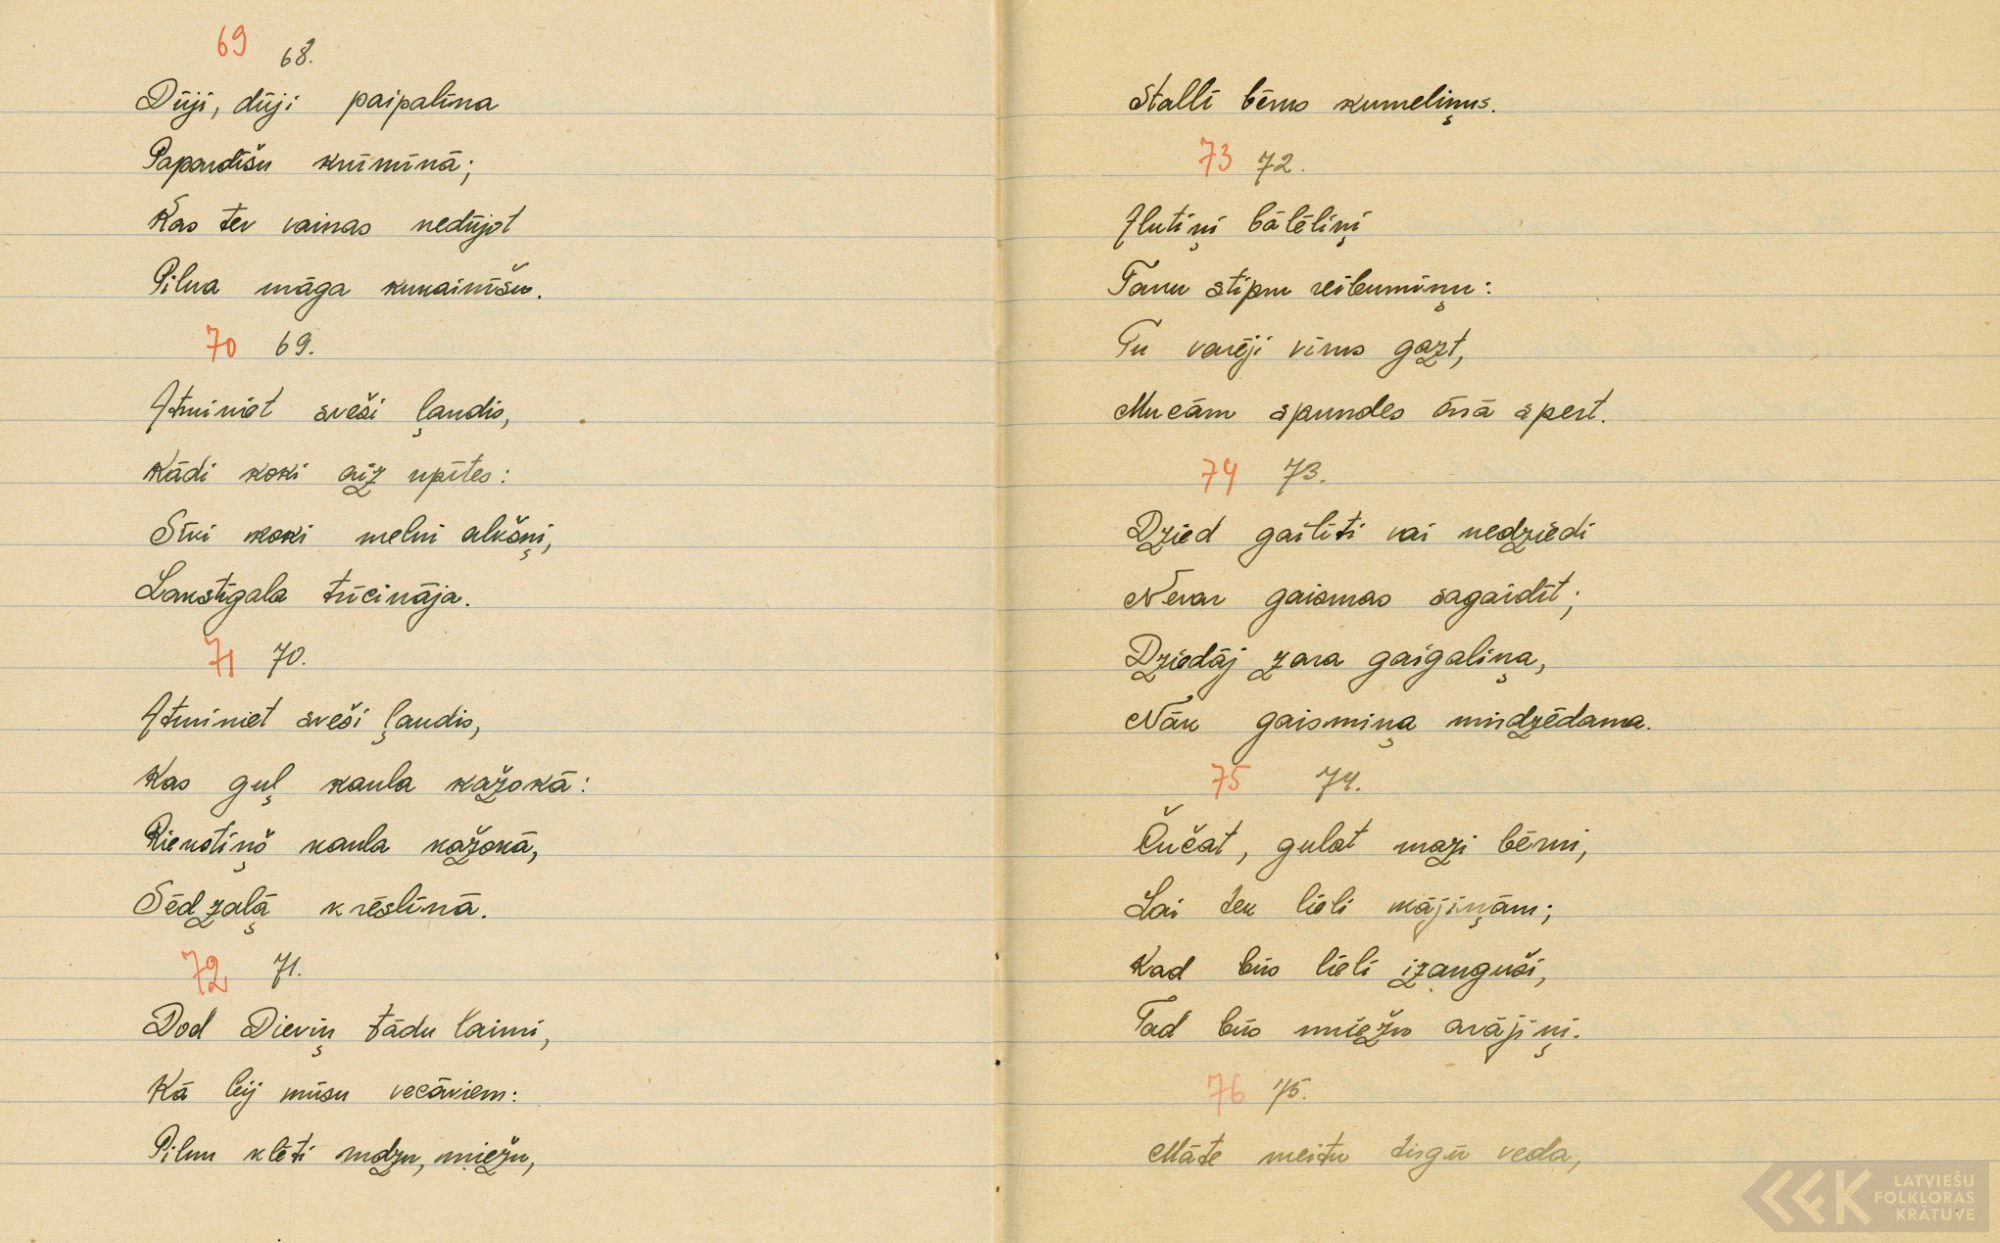 69 68.
Dūji, dūji paipalīna
Papardīšu krūmīnā;
Kas tev vainas nedūjot
Pilna māga kurainīšu.
70 69.
Atminiet sveši ļaudis,
Kādi koki aiz upītes:
Sīki koki melni alkšņi,
Lakstīgala trīcināja.
71 70.
Atminiet sveši ļaudis,
Kas guļ kaula kažokā:
Riekstiņš kaula kažokā,
Sēd zaļā krēslīnā.
72 71.
Dod Dieviņ tādu laimi,
Kā bij mūsu vecākiem:
Pilnu klēti rudzu, miežu,
Stallī bērus kumeliņus.
73 72.
Alutiņi bālēliņi
Tavu stipru reibumiņu:
Tu varēji vīrus gāzt,
Mucām spundes ārā spert.
74 73.
Dzied gailīti vai nedziedi
Nevar gaismas sagaidīt;
Dziedāj zara gaigaliņa,
Nāk gaismiņa mirdzēdama.
75 74.
Čučat, gulat mazi bērni,
Lai tek lieli mājiņām;
Kad būs lieli izauguši,
Tad būs miežu arājiņi.
76 75.
Māte meitu tirgū veda,
LATVIEŠU
FOLKLORAS
KRĀTUVE